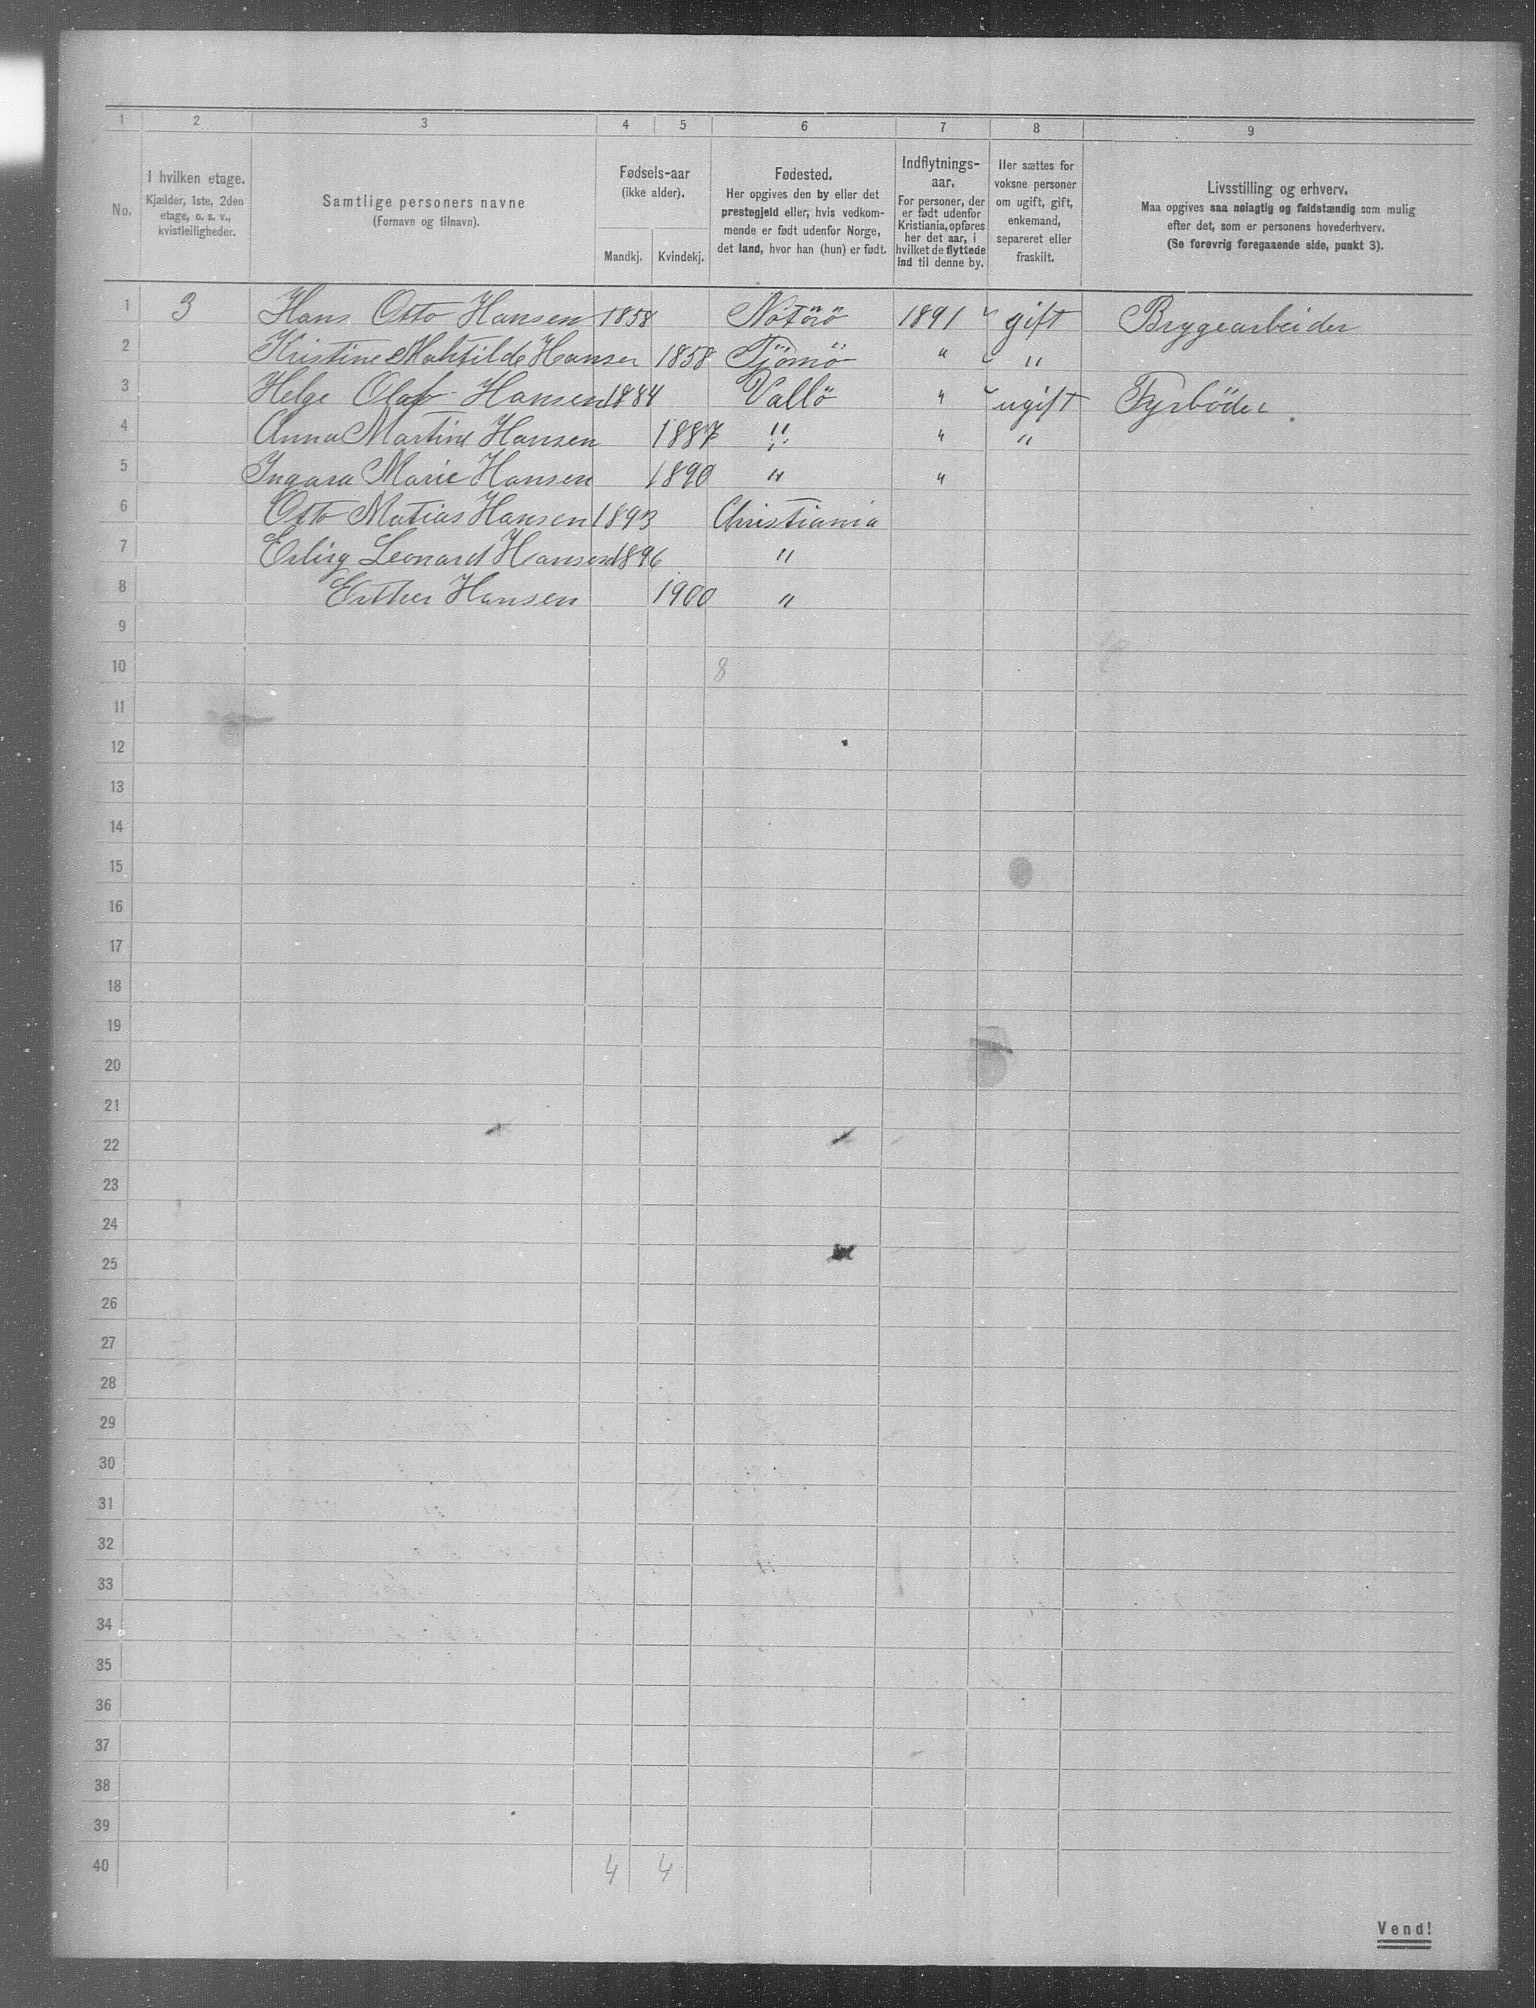 1 2 3 4 5 6 7 8 9
No.
I hvilken etage.
Kjælder, 1ste, 2den
etage, o. s. v.,
kvistleiligheder.
Samtlige personers navne
(Fornavn og tilnavn).
Fødsels-aar
(ikke alder).
Mandkj. Kvindekj.
Fødested.
Her opgives den by eller det
prestegjeld eller, hvis vedkom-
mende er født udenfor Norge,
det land, hvor han (hun) er født.
Indflytnings-
aar.
For personer, der
er født udenfor
Kristiania, opføres
her det aar, i
hvilket de flyttede
ind til denne by.
Her sættes for
voksne personer
om ugift, gift,
enkemand,
separeret eller
fraskilt.
Livsstilling og erhverv.
Maa opgives saa nøiagtig og fuldstændig som mulig
efter det, som er personens hovederhverv.
(Se forøvrig foregaaende side, punkt 3).
1 3 Hans Otto Hansen 1858 Nöterö 1891 gift Bryggearbeider
2 Kristine Mahtilde Hansen 1858 Tjömö " "
3 Helge Olaf Hansen 1884 Vallö " ugift Fyrböder
4 Anna Martine Hansen 1887 " " "
5 Marie Hansen 1890 " "
6 Otto Matias Hansen 1893 Christiania
7 Erling Leonard Hansen 1896 "
8 Esther Hansen 1900 "
9
10 8
11
12
13
14
15
16
17
18
19
20
21
22
23
24
25
26
27
28
29
30
31
32
33
34
35
36
37
38
39
40 4 4
Vend!